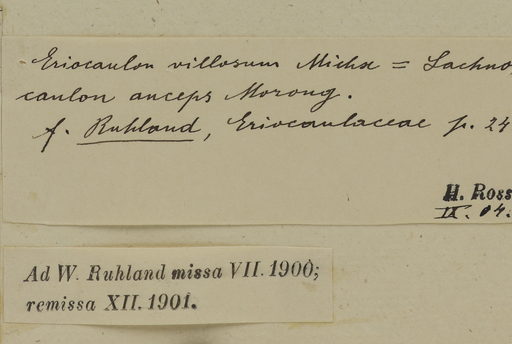 Eriocaulon villosum Michx = Lachno,
caulon anceps Morong.
f. Ruhland, Eriocaulaceae p. 24
H. Ross
II. 04.
Ad W. Ruhland missa VII. 1900;
remissa XII. 1901.